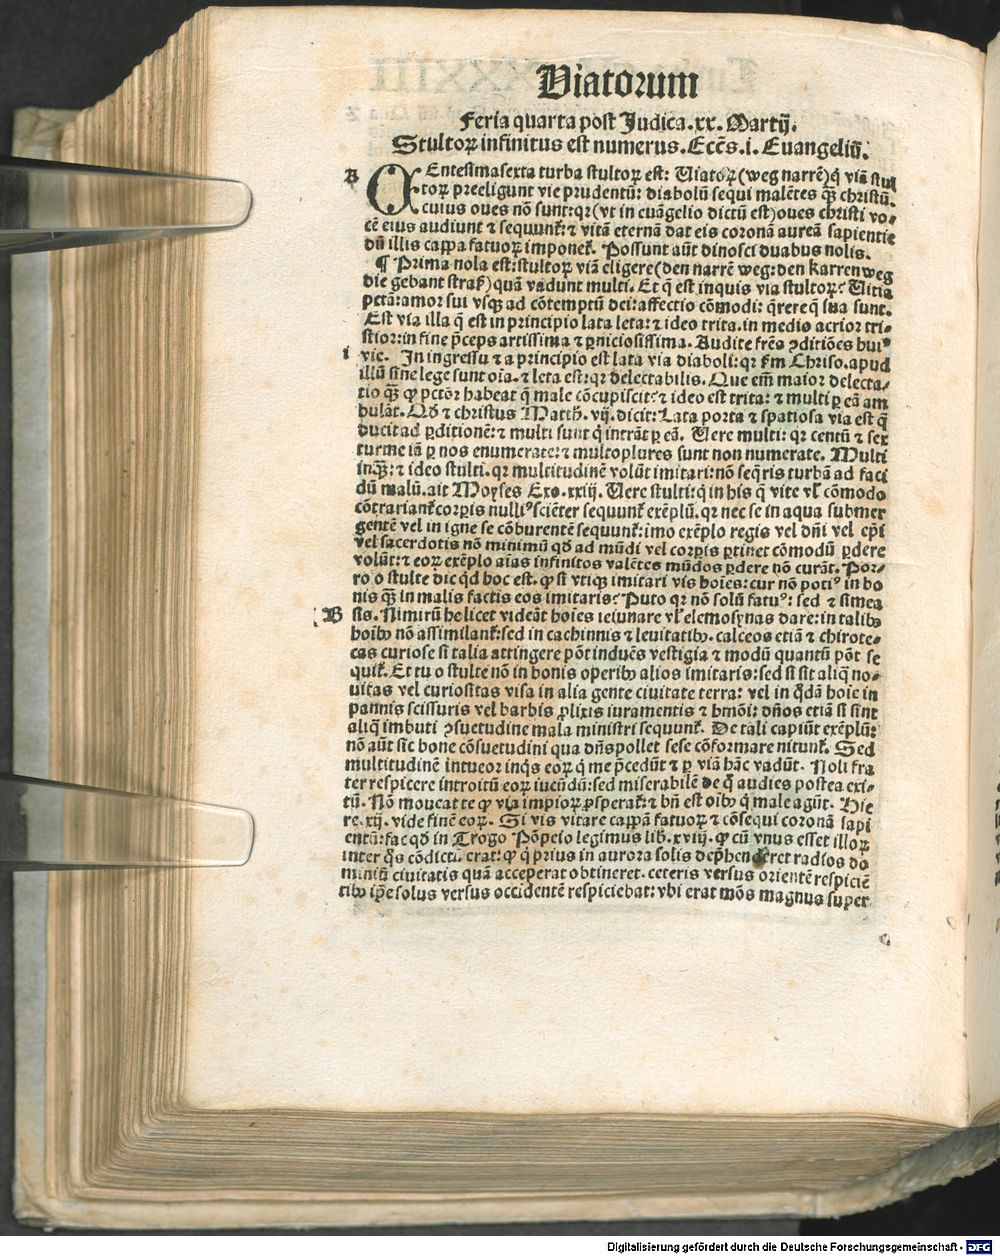 Viatorum
Feria quarta post Judica.xx. Martij.
Stultoꝝ infinitus est numerus. Ecčs.i. Euangeliū.
B CEntesimasexta turba stultoꝝ est: Viatoꝝ (weg narrē) q̄ viā stul
toꝝ preeligunt vie prudentū: diabolū sequi malētes q̄ȝ christū.
cuius oues nō sunt: qꝛ (vt in euāgelio dictū est) oues christi vo⸗
cē eius audiunt ⁊ sequunt᷑: ⁊ vitā eternā dat eis coronā aureā sapientie
dū illis cappa fatuoꝝ imponet᷑. Possunt aūt dinosci duabus nolis.
¶ Prima nola est: stultoꝝ viā eligere (den narrē weg: den karren weg
die gebant straß) quā vadunt multi. Et q̄ est inquis via stultoꝝ? Vitia
pctā: amor sui vsqȝ ad cōtemptū dei: affectio cōmodi: q̄rere q̄ sua sunt.
Est via illa q̄ est in principio lata leta: ⁊ ideo trita. in medio acrior tri⸗
stior: in fine p̄ceps artissima ⁊ ꝑniciosissima. Audite frēs ꝯditiōes huiꝰ
i vie. In ingressu ⁊ a principio est lata via diaboli: qꝛ ẜm Chriso. apud
illū sine lege sunt oīa. ⁊ leta est: qꝛ delectabilis. Que em̄ maior delecta⸗
tio q̄ȝ ꝙ pctōr habeat q̄ male cōcupiscit? ⁊ ideo est trita: ⁊ multi ꝑ eā am
bulāt. Qd̄ ⁊ christus Matth. vij. dicit: Lata porta ⁊ spatiosa via est q̄
ducit ad ꝑditionē: ⁊ multi sunt q̇ intrāt ꝑ eā. Vere multi: qꝛ centū ⁊ sex
turme iā ꝑ nos enumerate: ⁊ multoplures sunt non numerate. Multi
inq̄ȝ: ⁊ ideo stulti. qꝛ multitudinē volūt imitari: nō seq̄ris turbā ad faci
dū malū. ait Moyses Exo. xxiij. Vere stulti: q̇ in his q̄ vite vl̄ cōmodo
cōtrariant᷑ corꝑis nulliꝰ sciēter sequunt᷑ exēplū. qꝛ nec se in aqua submer
gentē vel in igne se cōburentē sequunt᷑: imo exēplo regis vel dn̄i vel ep̄i
vel sacerdotis nō minimū qd̄ ad mūdi vel corꝑis ꝑtinet cōmodū ꝑdere
volūt: ⁊ eoꝝ exēplo aīas infinitos valētes mūdos ꝑdere nō curāt. Por⸗
ro o stulte dic qd̄ hoc est. ꝙ si vtiqȝ imitari vis hoīes: cur nō potiꝰ in bo
nis q̄ȝ in malis factis eos imitaris? Puto qꝛ nō solū fatuꝰ: sed ⁊ simea
B sis. Nimirū he licet videāt hoīes ieiunare vl̄ elemosynas dare: in talibꝫ
hoībꝫ nō assimilant᷑: sed in cachinnis ⁊ leuitatibꝫ. calceos etiā ⁊ chirote⸗
cas curiose si talia attingere pōt induēs vestigia ⁊ modū quantū pōt se
quit᷑. Et tu o stulte nō in bonis operibꝫ alios imitaris: sed si sit aliq̄ no⸗
uitas vel curiositas visa in alia gente ciuitate terra: vel in q̄dā hoīe in
pannis scissuris vel barbis ꝓlixis iuramentis ⁊ hm̄oi: dn̄os etiā si sint
aliq̄ imbuti ꝯsuetudine mala ministri sequunt᷑. De tali capiūt exēplū:
nō aūt sic bone cōsuetudini qua dn̄s pollet sese cōformare nitunt᷑. Sed
multitudinē intueor inq̇s eoꝝ q̇ me p̄cedūt ⁊ ꝑ viā hāc vadūt. Noli fra
ter respicere introitū eoꝝ iucūdū: sed miserabilē de q̄ audies postea exi⸗
tū. Nō moueat te ꝙ via impioꝝ ꝓsperat᷑: ⁊ bn̄ est oībꝫ q̇ male agūt. Hie
re. xij. vide finē eoꝝ. Si vis vitare cappā fatuoꝝ ⁊ cōsequi coronā sapi
entū: fac qd̄ in Trogo Pōpeio legimus lib. xviij. ꝙ cū vnus esset illoꝝ
inter q̄s cōdictū erat: ꝙ q̇ prius in aurora solis dep̄henderet radios do
miniū ciuitatis quā acceperat obtineret. ceteris versus orientē respiciē
tibꝫ ip̄e solus versus occidentē respiciebat: vbi erat mōs magnus super
Digitalisierung gefördert durch die Deutsche Forschungsgemeinschaft - DFG